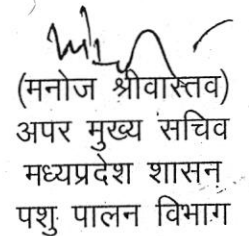 (मनोज श्रीवास्तव)
अपर मुख्य सचिव
मध्यप्रदेश शासन
पशु पालन विभाग